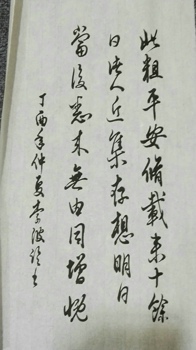 此粗平安脩載来十餘
日諸人近集存想明日
當復悉来無由同增慨
丁酉年仲夏李波